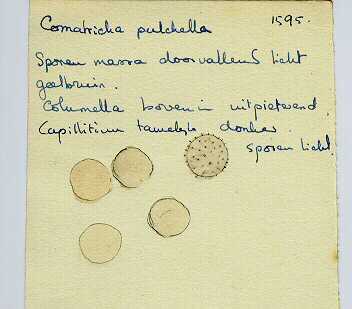 Comatricha pulchella 1595.
Sporen massa doorvallend licht
geelbruin.
Columella boven in uitpieterend.
Capillitium tamelijk donker.
sporen licht.